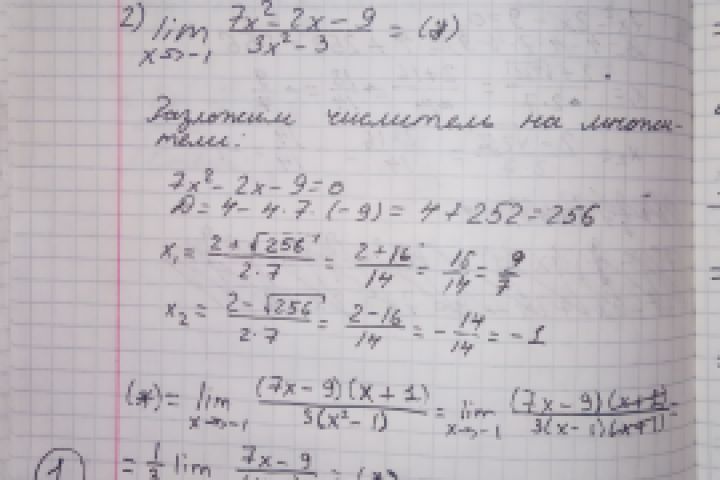 2) lim x→-1 (7x² - 2x - 9)/(3x² - 3) = (*)
Разложим числитель на множи-
тели:
7x² - 2x - 9 = 0
D = 4 - 4·7·(-9) = 4 + 252 = 256
x₁ = (2 + √256)/(2·7) = (2 + 16)/14 = 16/14 = 9/7
x₂ = (2 - √256)/(2·7) = (2 - 16)/14 = -14/14 = -1
(*) = lim x→-1 ((7x - 9)(x + 1))/(3(x² - 1)) = lim x→-1 ((7x - 9)(x + 1))/(3(x - 1)(x + 1)) =
= 1/3 lim (7x - 9)